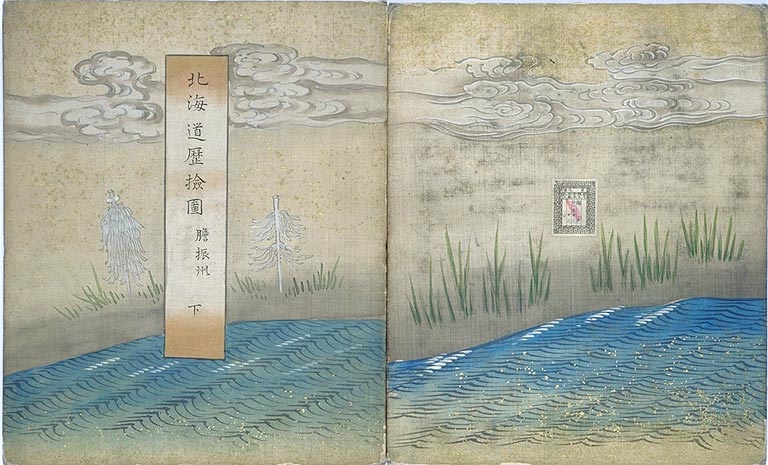 北海道歴検圖
膽振州
下